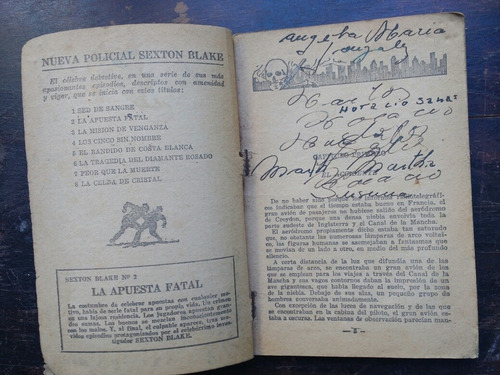 NUEVA POLICIAL SEXTON BLAKE
El célebre detective, en una serie de sus más
apasionantes episodios, descriptos con amenidad
y vigor, que se inicia con estos títulos:
1 SED DE SANGRE
2 LA APUESTA FATAL
3 LA MISION DE VENGANZA
4 LOS CINCO SIN NOMBRE
5 EL BANDIDO DE COSTA BLANCA
6 LA TRAGEDIA DEL DIAMANTE ROSADO
7 PEOR QUE LA MUERTE
8 LA CELDA DE CRISTAL
SEXTON BLAKE No 2
LA APUESTA FATAL
La costumbre de celebrar apuestas por cualquier mo-
tivo, había de serle fatal para su propia vida. Un crimen
en una lujosa residencia. Los jugadores apuestan
sumas. Los buenos se mezclan
con los malos. Y, al final, el culpable aparece. Una
vividos episodios protagonizados por el celebérrimo inves-
tigador SEXTON BLAKE.
Angela Maria
Gonzalez
HORACIO
Horacio
CAPITULO PRIMERO
Martha
EL
De no haber sido porque los informes radiotelegráfi-
cos indicaban que el tiempo estaba bueno en Francia, el
gran avión de pasajeros no hubiese salido del aeródromo
de Croydon, porque una densa niebla envolvía toda la
parte sudeste de Inglaterra y el Canal de la Mancha.
El aeródromo propiamente dicho estaba tan saturado
que, no obstante las numerosas lámparas de arco voltai-
co, las figuras humanas se asemejaban a fantasmas que
se movían de un lado a otro, en medio del más profundo
silencio.
A corta distancia de la luz que difundía una de las
lámparas de arco, se encontraba un gran avión de los
que se emplean para los viajes a través del Canal de la
Mancha y sus vagos contornos daban la impresión de un
ave gigantesca, que había llegado al suelo, por la zona
de la niebla. Debajo de sus alas, un pequeño grupo de
hombres conversaba animadamente.
Con excepción de las luces de navegación y de las que
se encontraban en la cabina del piloto, el gran avión es-
taba a oscuras. Las ventanas de observación parecían man-
— 3 —